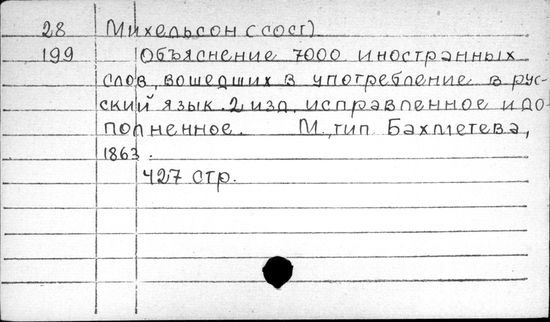 28 Михельсон (сост)
199 Объяснение 7000 иностранных
слов, вошедших в употребление в рус-
ский язык. 2 изд. исправленное и до-
полненное. М., тип Бахметева,
1863.
427 стр.